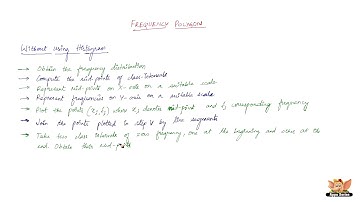 FREQUENCY POLYGON
Without using Histogram
→ Obtain the frequency distribution
→ Compute the mid-points of class-intervals
→ Represent mid-points on X-axis on a suitable scale
→ Represent frequencies on Y-axis on a suitable scale
→ Plot the points (xi, fi) where xi denotes mid-point and fi corresponding frequency
→ Join the points plotted in step V by line segments
→ Take two class intervals of zero frequency, one at the beginning and other at the
end. Obtain their mid-points